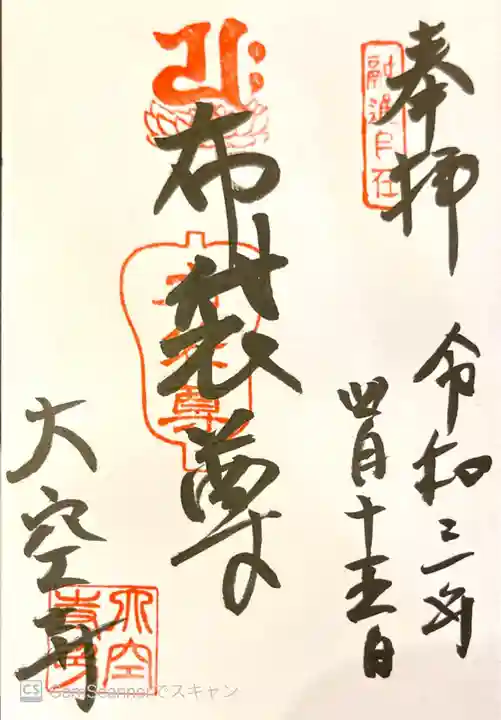 奉拝
融通自在
令和三年
四月十五日
布袋尊
布袋尊
大空寺
大空寺
CS CamScannerでスキャン